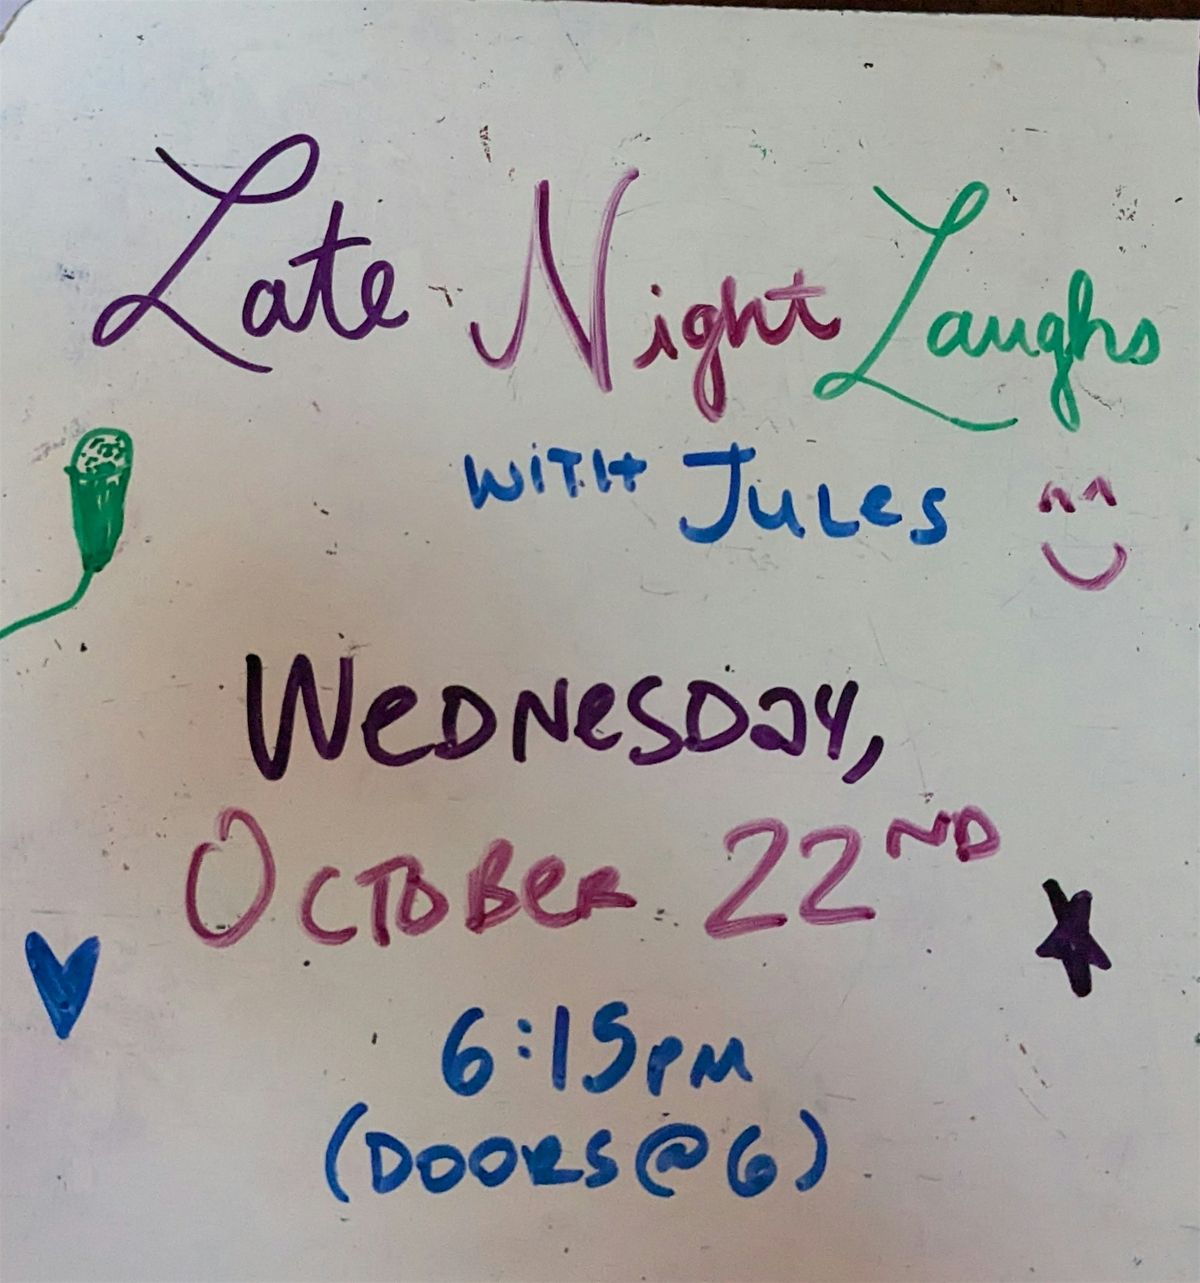 Late Night Laughs
WITH JULes
WeDNesDay,
OCTOBeR 22ND
6:15PM
(DOORS@6)